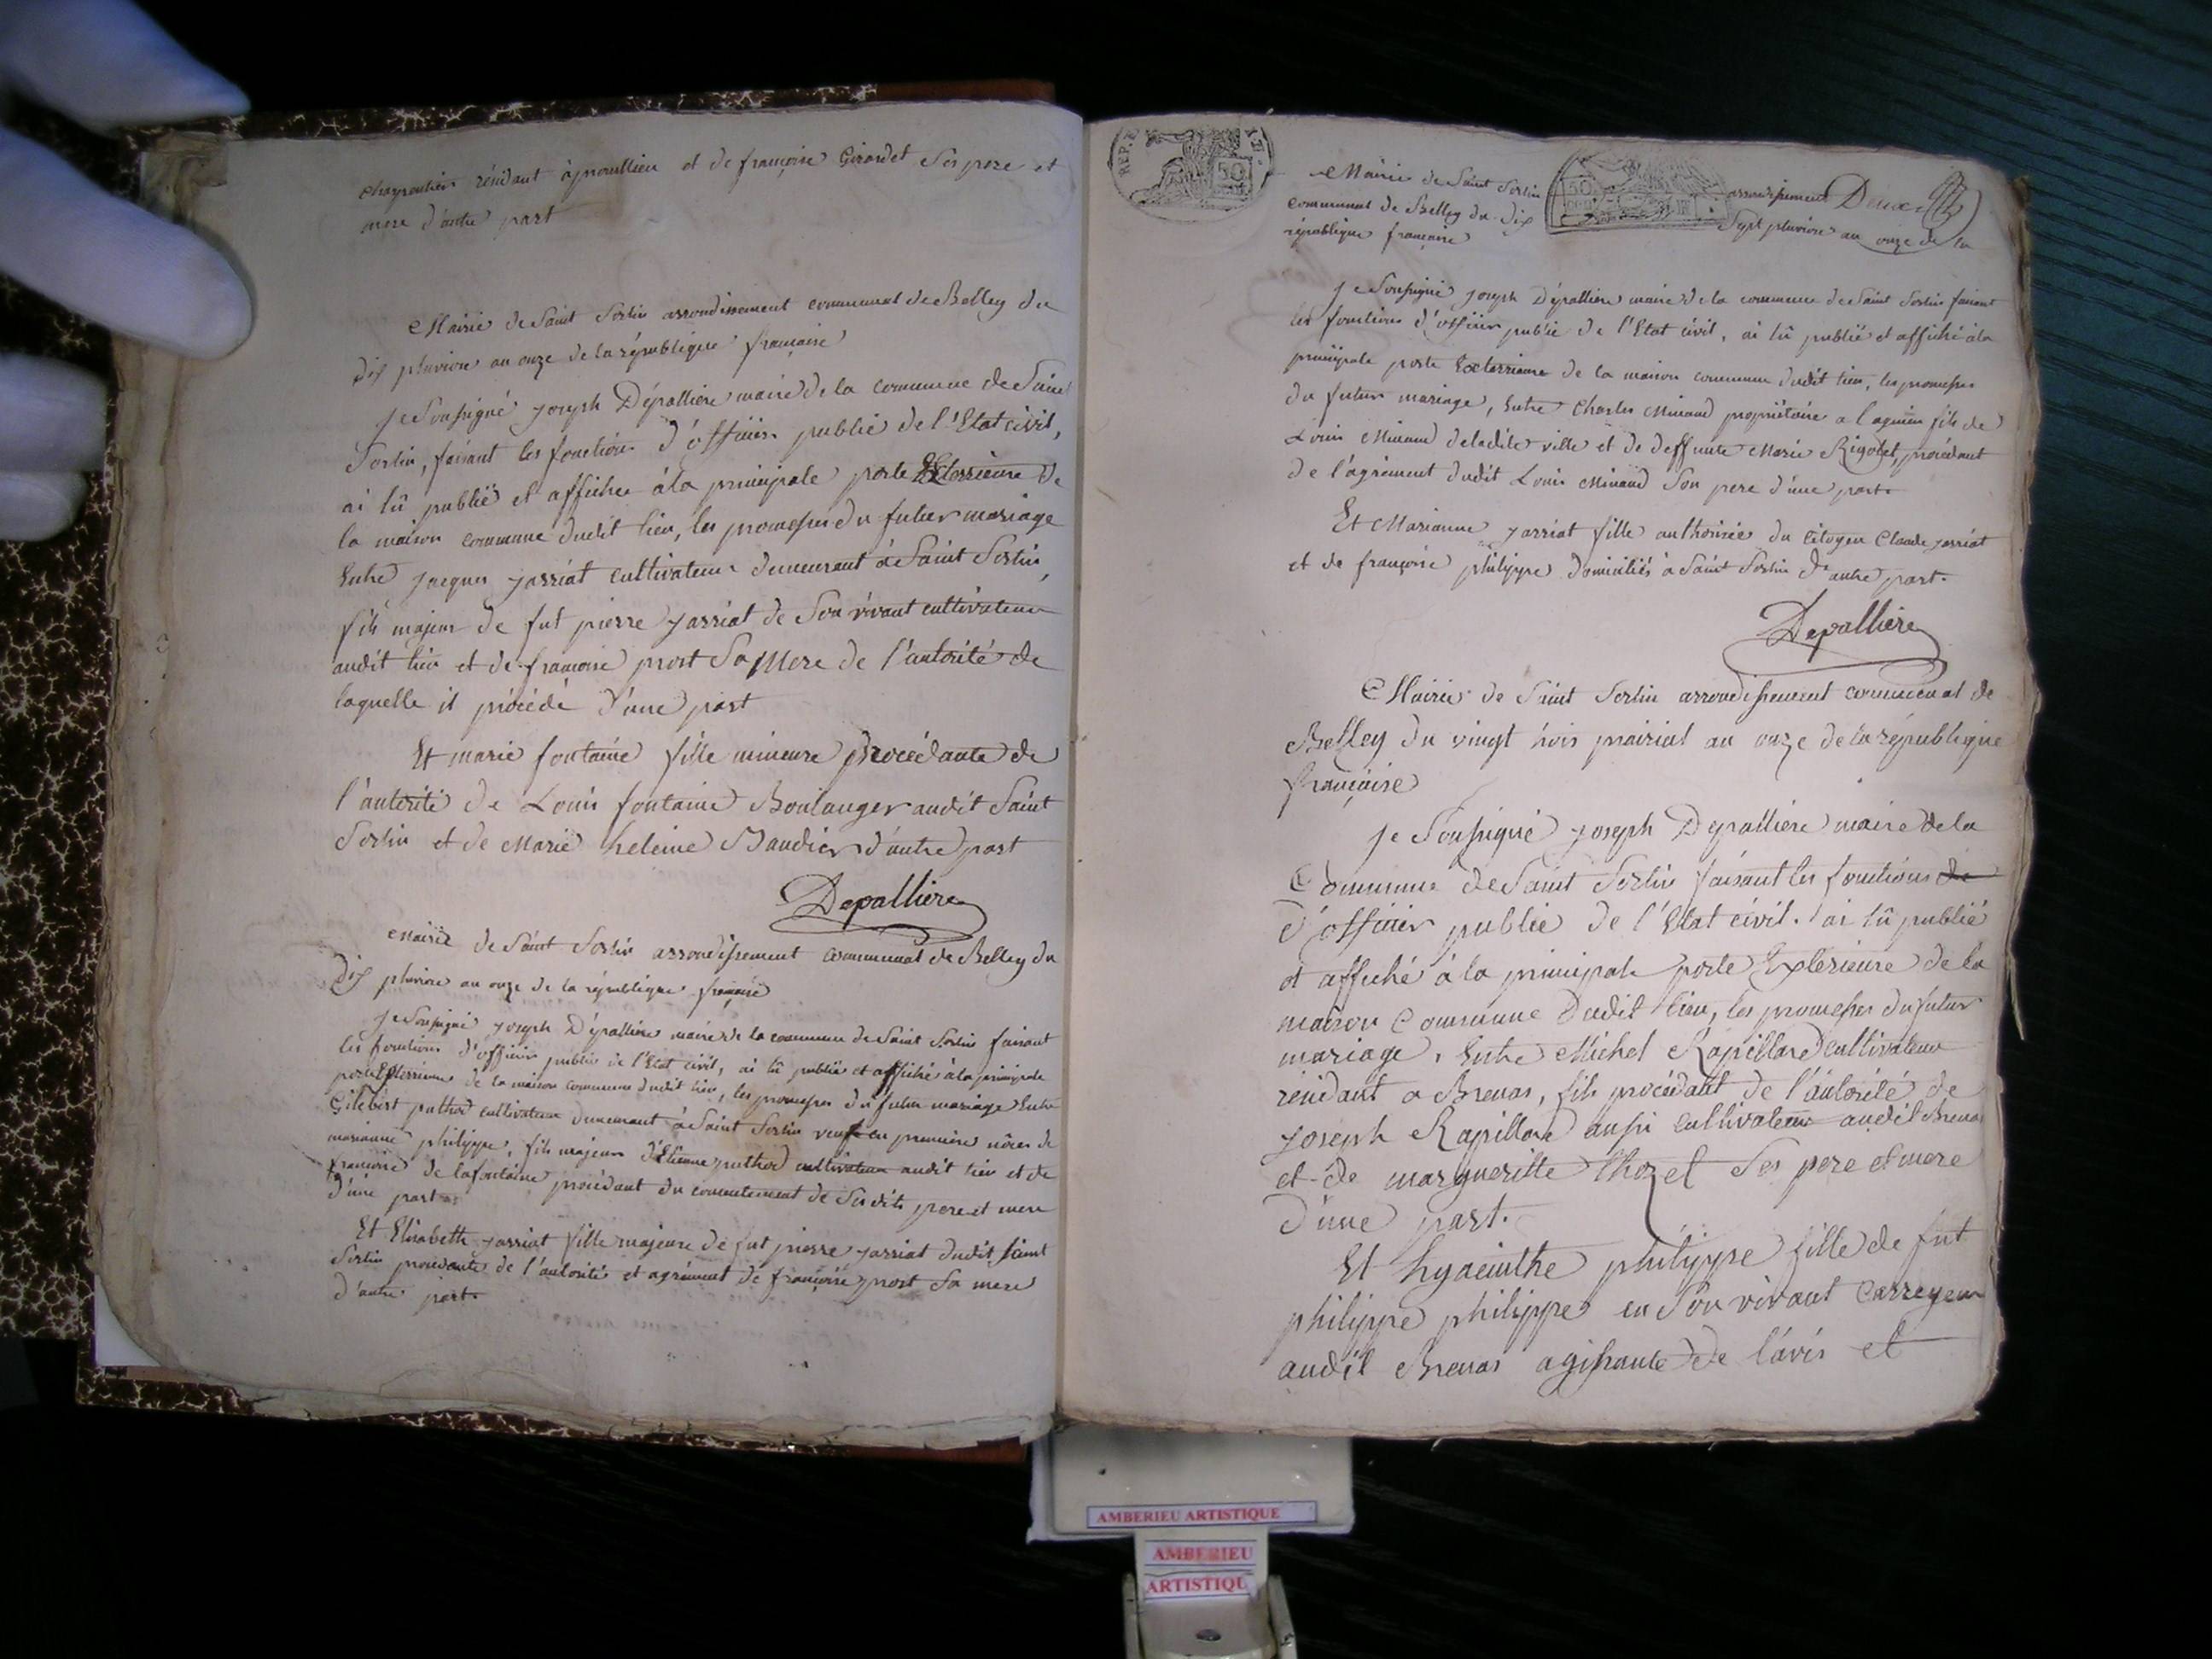 charpentier résidant à proullieu et de françoise Girardet Ses pere et
mere d'autre part
Mairie de Saint Sorlin arrondissement communal de Belley du
dix pluviose an onze de la république française
Je Soussigné Joseph Dépalliere maire de la commune de Saint
Sorlin, faisant les fonctions d'officier public de l'Etat civil,
ai lû publié et affiché à la principale porte Extérieure de
la maison commune dudit lieu, les promesses du futur mariage
Entre Jacques Jarriat cultivateur demeurant à Saint Sorlin,
fils majeur de fut pierre Jarriat de Son vivant cultivateur
audit lieu et de françoise prost Sa Mere de l'autorité de
laquelle il procédé d'une part
Et marie fontaine fille mineure procédante de
l'autorité de Louis fontaine Boulanger audit Saint
Sorlin et de Marie heleine Baudier d'autre part
Depalliere
Mairie de Saint Sorlin arrondissement communal de Belley du
dix pluviose an onze de la république française
Je Soussigné Joseph Dépalliere maire de la commune de Saint Sorlin faisant
les fonctions d'officier public de l'Etat civil, ai lû publié et affiché à la principale
porte Extérieure de la maison commune dudit lieu, les promesses du futur mariage Entre
Gilebert puthod cultivateur demeurant à Saint Sorlin veuf en premiere nôces de
marianne philippe, fils majeur d'Etienne puthod cultivateur audit lieu et de
françoise de lafontaine procédant du consentement de Ses dits pere et mere
d'une part
Et Elisabeth Jarriat fille majeure de fut pierre Jarriat dudit Saint
Sorlin procédante de l'autorité et agrément de françoise prost Sa mere
d'autre part
REP.
50
Mairie de Saint Sorlin arrondissement
communal de Belley du dix Sept pluviose an onze de la
république française
Je Soussigné Joseph Dépalliere maire de la commune de Saint Sorlin faisant
les fonctions d'officier public de l'Etat civil, ai lû publié et affiché à la
principale porte Extérieure de la maison commune dudit lieu, les promesses
du futur mariage, Entre Charles Minaud propriétaire a lagnieu fils de
Louis Minaud de ladite ville et de deffunte Marie Rigolet, procédant
de l'agrément dudit Louis Minaud Son pere d'une part
Et Marianne Jarriat fille authorisée du Citoyen Claude Jarriat
et de françoise philippe domiciliés à Saint Sorlin d'autre part.
Depalliere
Mairie de Saint Sorlin arrondissement communal de
Belley du vingt trois prairial an onze de la république
française
Je Soussigné Joseph Depalliere maire de la
Commune de Saint Sorlin faisant les fonctions de
d'officier public de l'Etat civil. ai lû publié
et affiché à la principale porte Extérieure de la
maison Commune dudit lieu, les promesses du futur
mariage, Entre Michel Rapillard cultivateur
résidant a Brenas, fils procédant de l'autorité de
Joseph Rapillard aussi Cultivateur audit Brenas
et de margueritte thozet Ses pere et mere
d'une part.
Et hyacinthe philippe fille de fut
philippe philippe en Son vivant Carreyeur
audit Brenas agissante de l'avis et
AMBERIEU ARTISTIQUE
AMBERIEU
ARTISTIQU